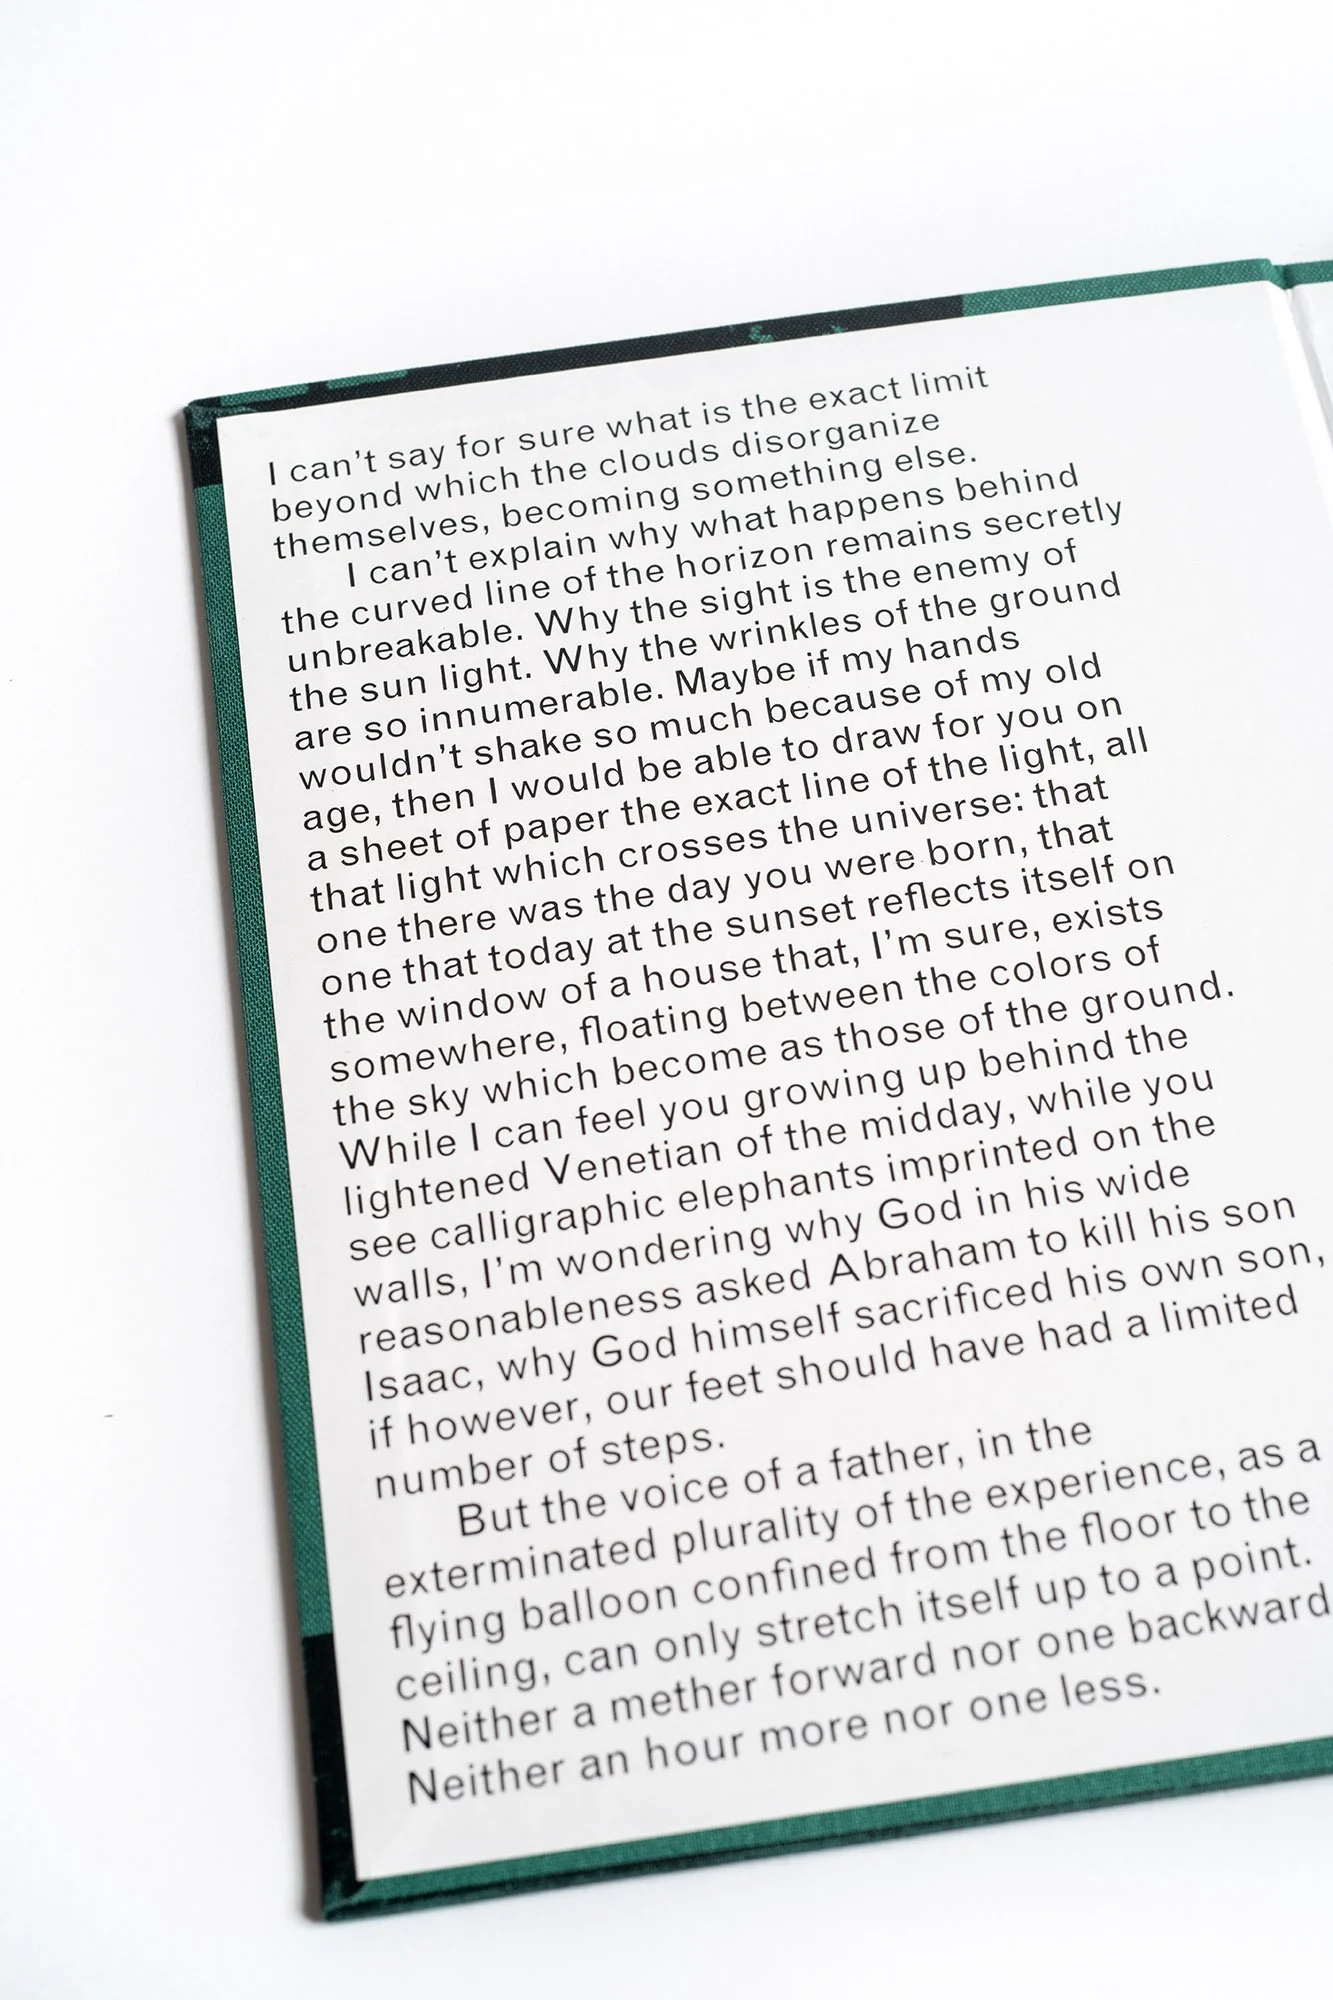 I can't say for sure what is the exact limit
beyond which the clouds disorganize
themselves, becoming something else.
I can't explain why what happens behind
the curved line of the horizon remains secretly
unbreakable. Why the sight is the enemy of
the sun light. Why the wrinkles of the ground
are so innumerable. Maybe if my hands
wouldn't shake so much because of my old
age, then I would be able to draw for you on
a sheet of paper the exact line of the light, all
that light which crosses the universe: that
one there was the day you were born, that
one that today at the sunset reflects itself on
the window of a house that, I'm sure, exists
somewhere, floating between the colors of
the sky which become as those of the ground.
While I can feel you growing up behind the
lightened Venetian of the midday, while you
see calligraphic elephants imprinted on the
walls, I'm wondering why God in his wide
reasonableness asked Abraham to kill his son
Isaac, why God himself sacrificed his own son,
if however, our feet should have had a limited
number of steps.
But the voice of a father, in the
exterminated plurality of the experience, as a
flying balloon confined from the floor to the
ceiling, can only stretch itself up to a point.
Neither a mether forward nor one backward
Neither an hour more nor one less.